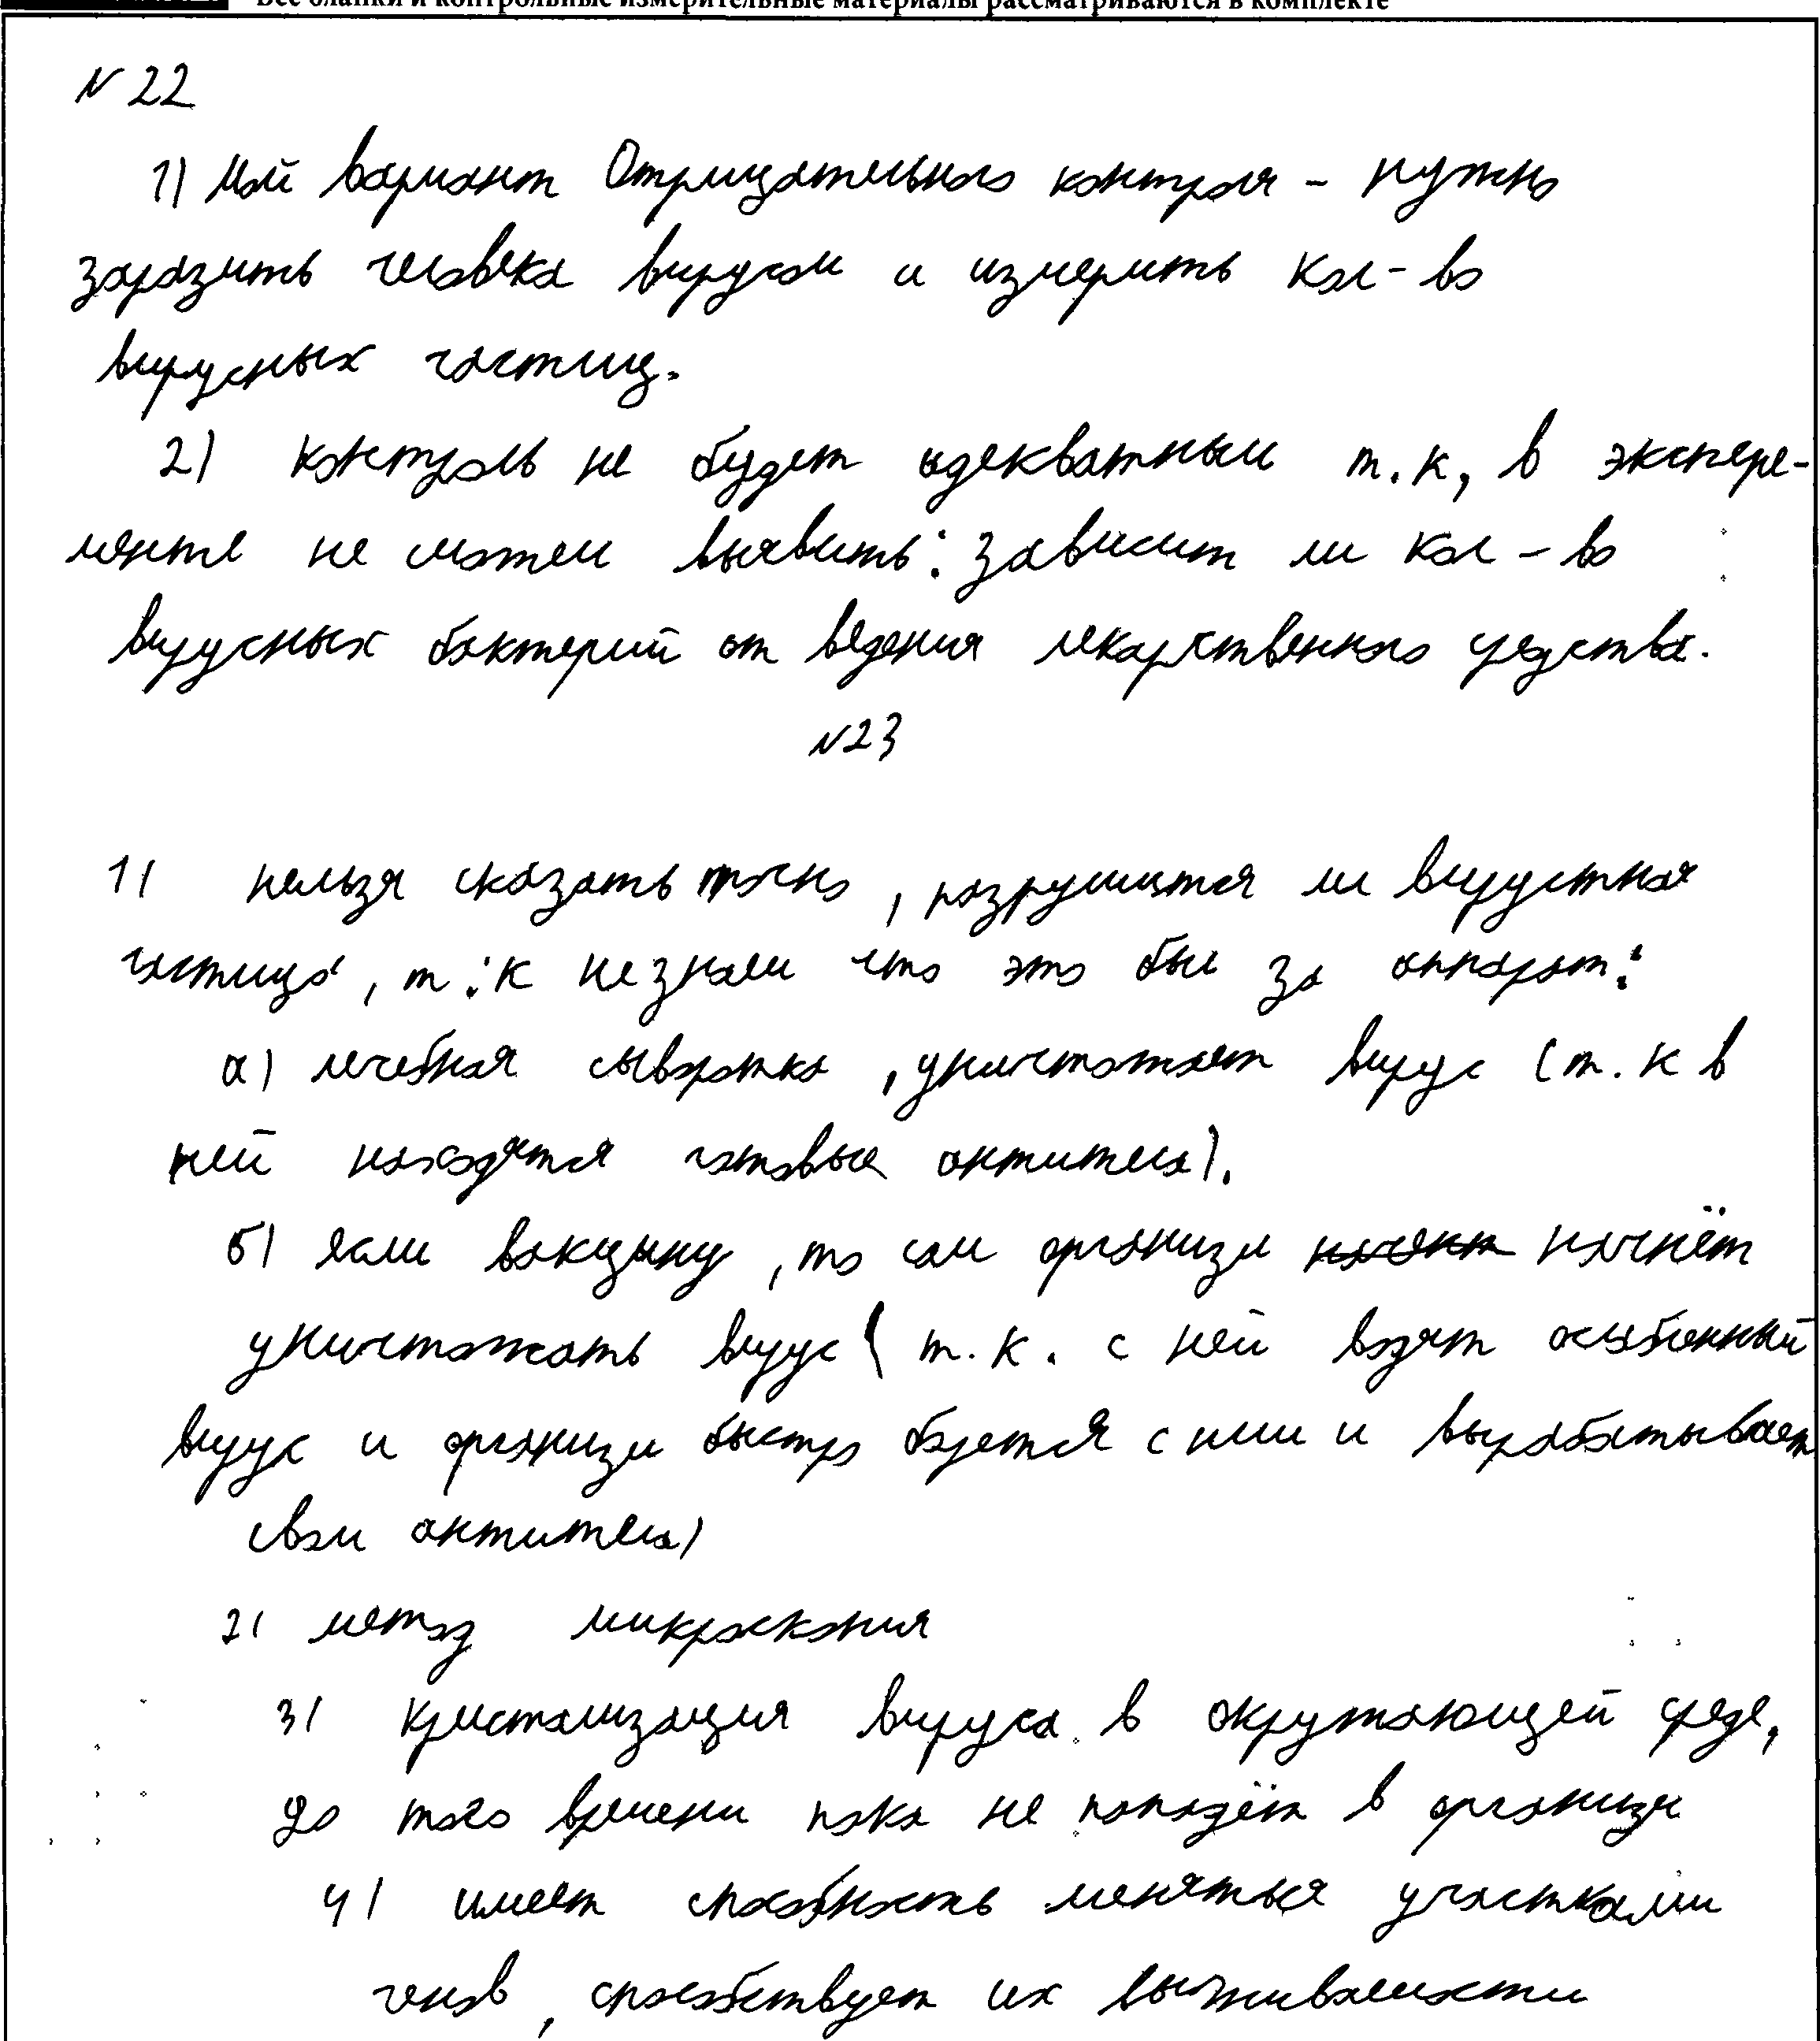 Все бланки и контрольные измерительные материалы рассматриваются в комплекте
N 22
1) Мой вариант Отрицательного контроля - нужно
заразить человека вирусом и измерить кол-во
вирусных частиц.
2) контроль не будет адекватным т.к, в экспере-
менте не можем выявить: зависит ли кол-во
вирусных бактерий от ведения лекарственного средства.
N23
1) нельзя сказать точно, разрушится ли вирустная
частица, т.к не знаем что это был за аппарат:
а) лечебная сыворотка, уничтожает вирус (т.к в
ней находятся готовые антитела).
б) если вакцину, то сам организм начнёт
уничтожать вирус (т.к. с ней водят ослабенный
вирус и организм быстро борется с ним и вырабатывает
свои антитела)
2) метод микроскопия
3) Кристализация вируса в окружающей среде,
до того времени пока не попадёт в организм
4) имеет способность меняться участками
генов, способствует их выживаемости